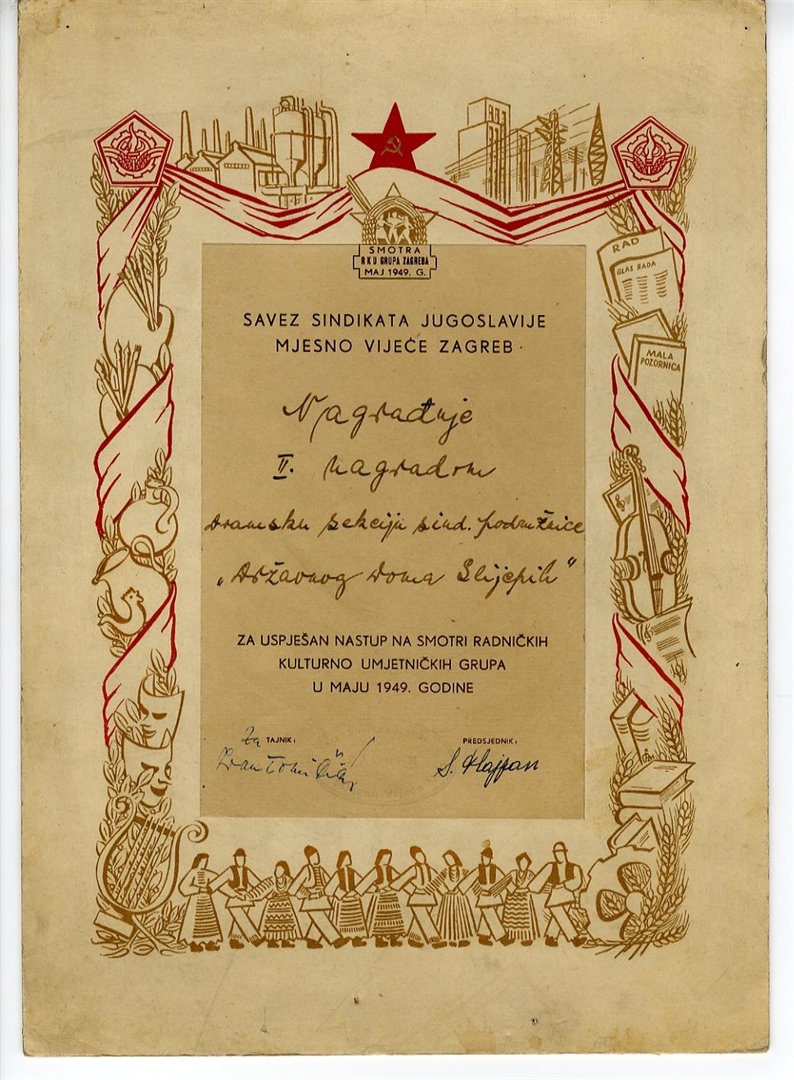 SMOTRA
RKU GRUPA ZAGREBA
MAJ 1949. G.
RAD
GLAS RADA
MALA
POZORNICA
SAVEZ SINDIKATA JUGOSLAVIJE
MJESNO VIJEĆE ZAGREB
Nagrađuje
II. nagradom
dramsku sekciju sind. podružnice
"Državnog doma Slijepih"
ZA USPJEŠAN NASTUP NA SMOTRI RADNIČKIH
KULTURNO UMJETNIČKIH GRUPA
U MAJU 1949. GODINE
Za TAJNIK:
PREDSJEDNIK:
S.